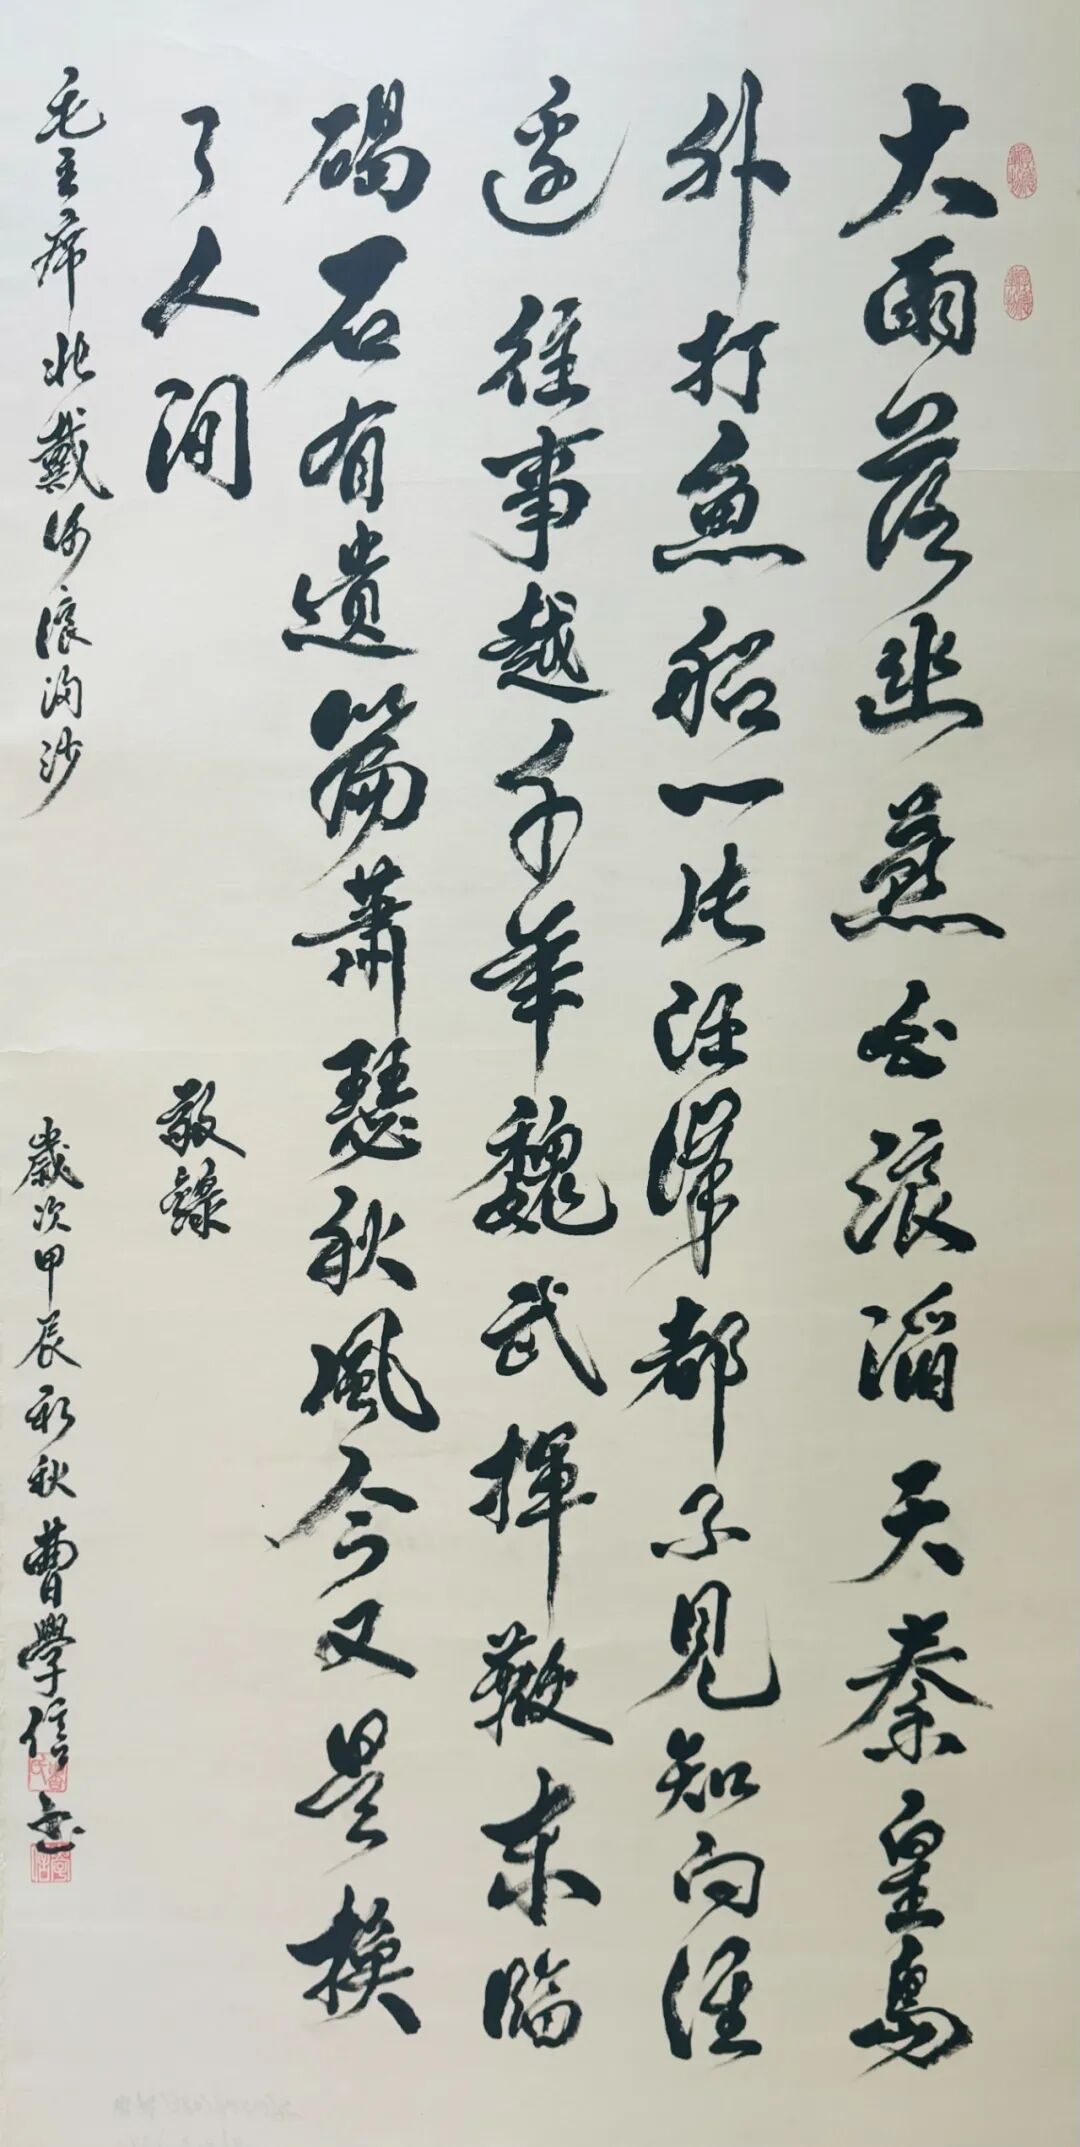 大雨落幽燕白浪滔天秦皇島
外打魚船一片汪洋都不見知向誰
邊往事越千年魏武揮鞭東臨
碣石有遺篇蕭瑟秋風今又是換
了人間
敬錄
毛主席北戴河浪淘沙
歲次甲辰初秋曹學信書